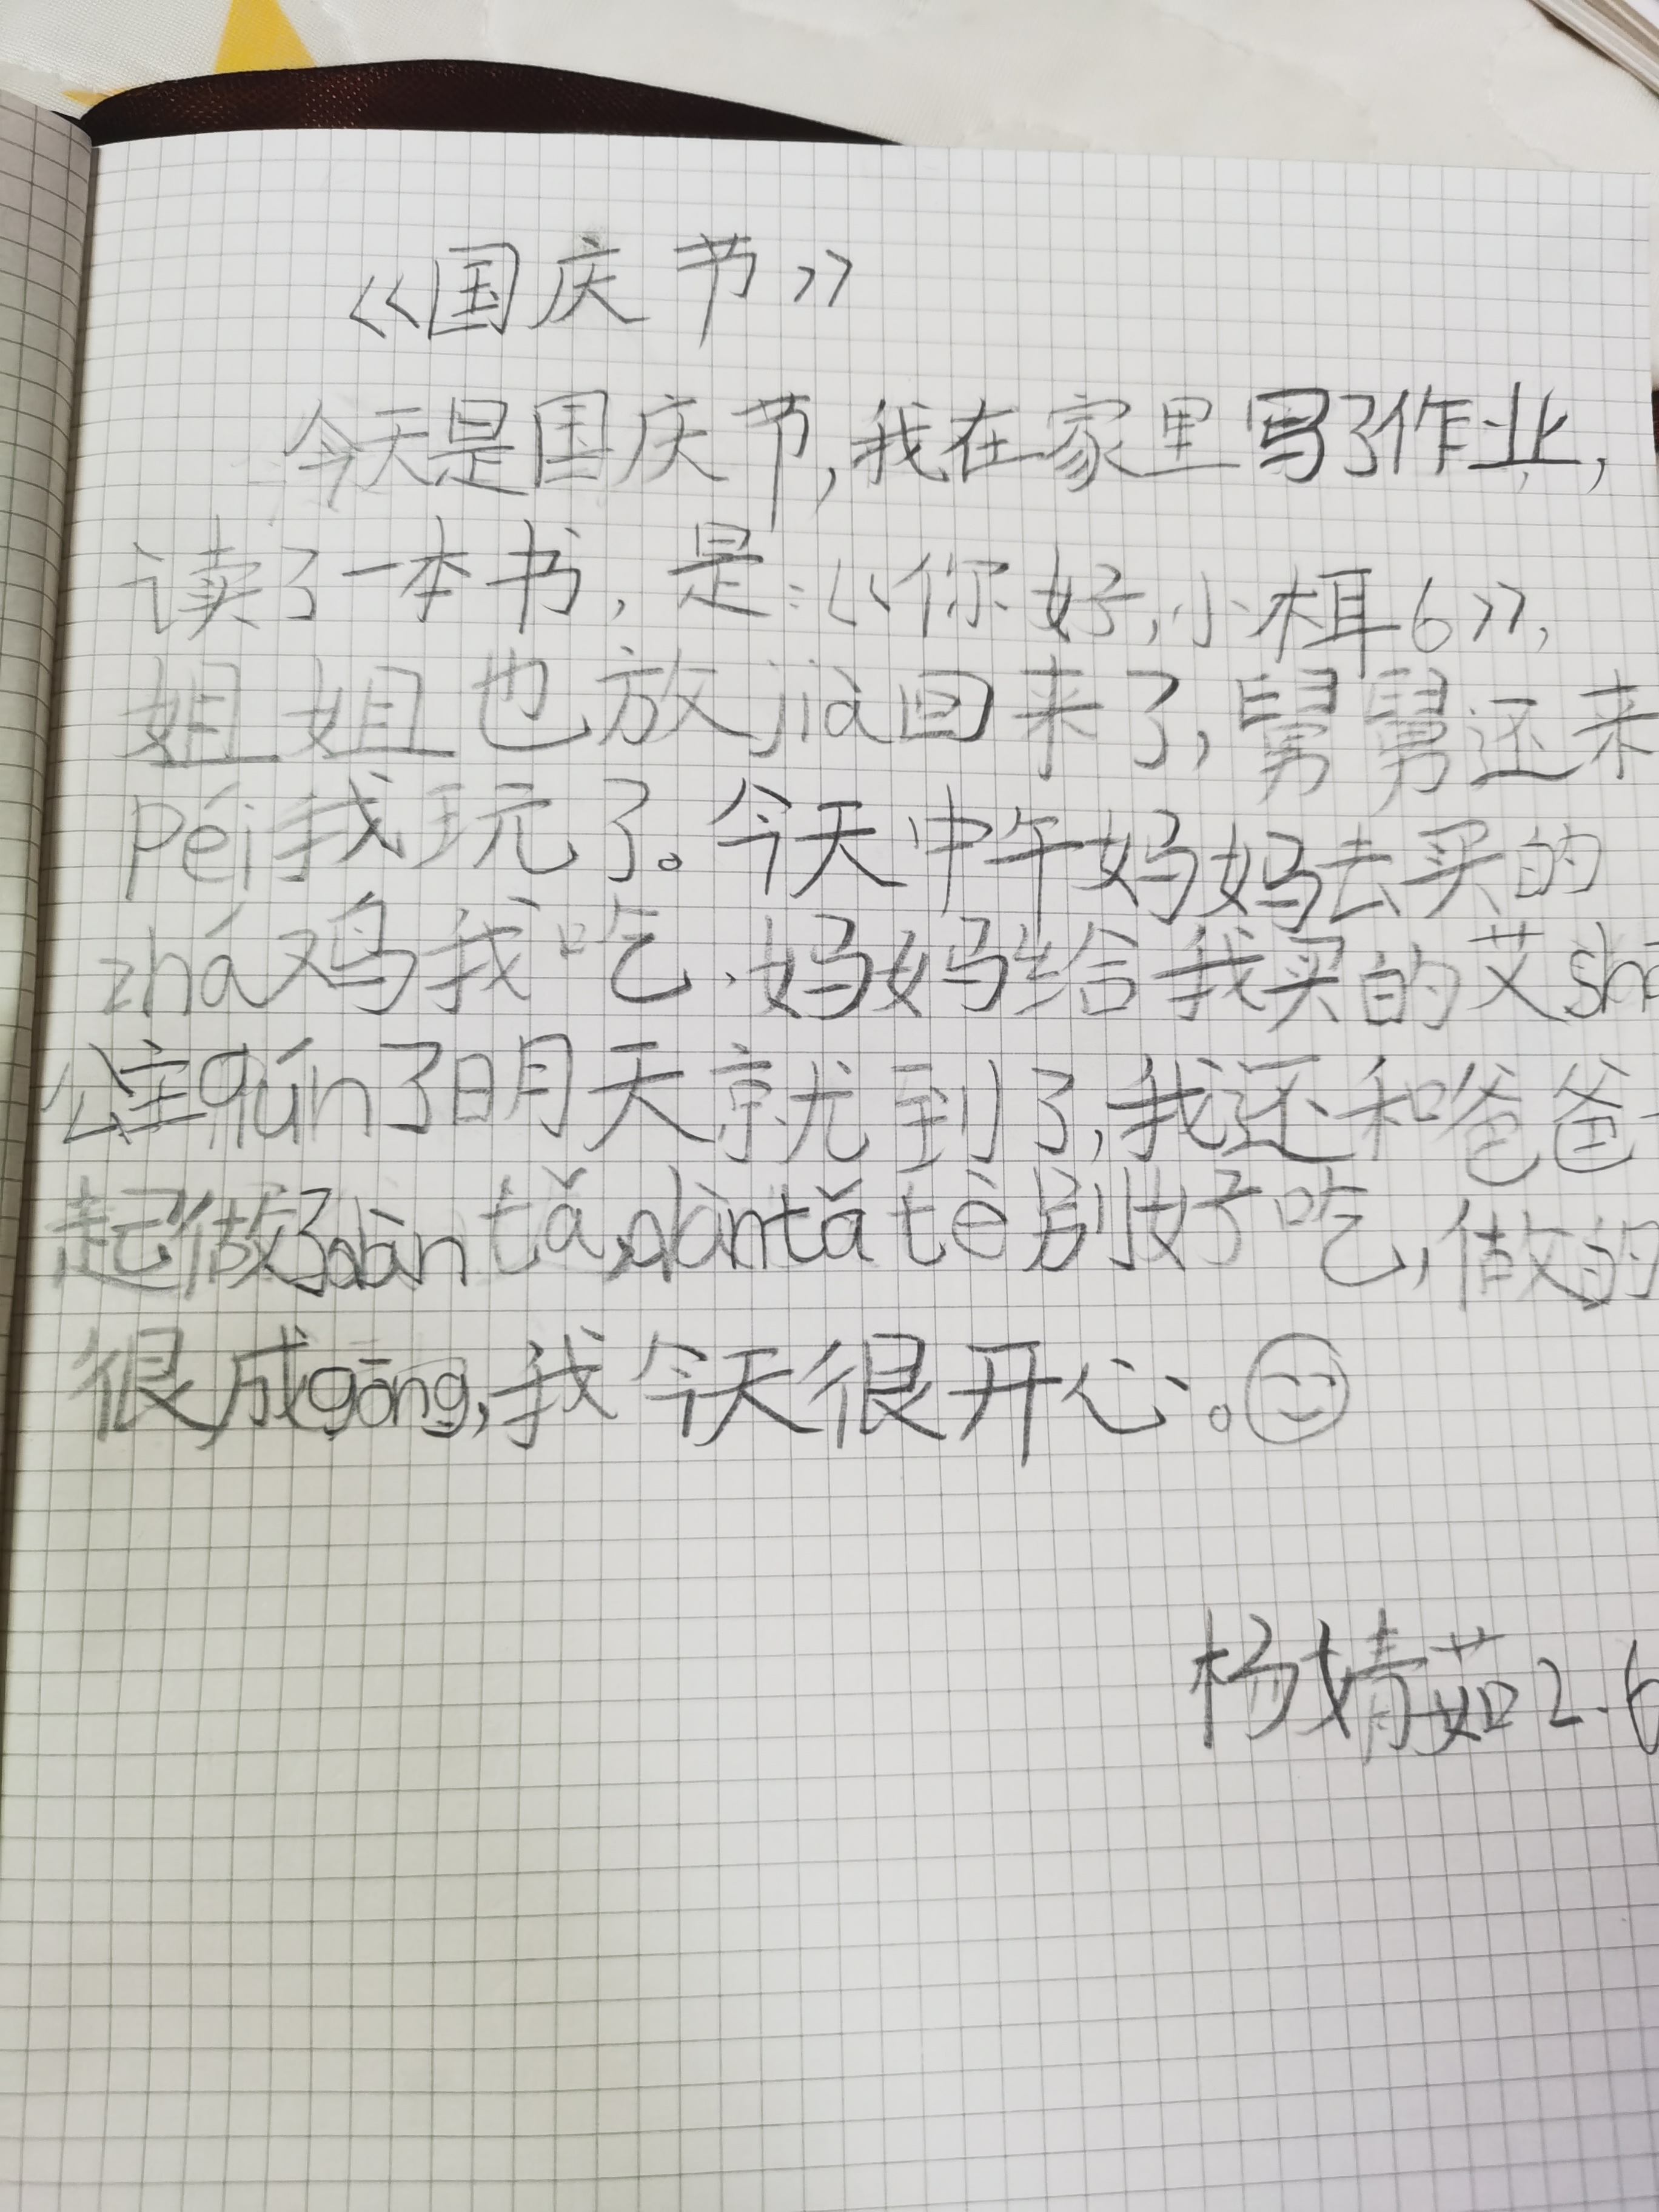 《国庆节》
今天是国庆节,我在家里写了作业,
读了一本书,是:《你好,小 6》,
姐姐也放jià回来了,舅舅还来
péi我玩了。今天中午妈妈去买的
zhá鸡我吃,妈妈给我买的艾shā
公主qún了明天就到了,我还和爸爸
起做了dàn tǎ,dàntǎ tè别好吃,做的
很成gōng,我今天很开心。
杨婧茹2.6